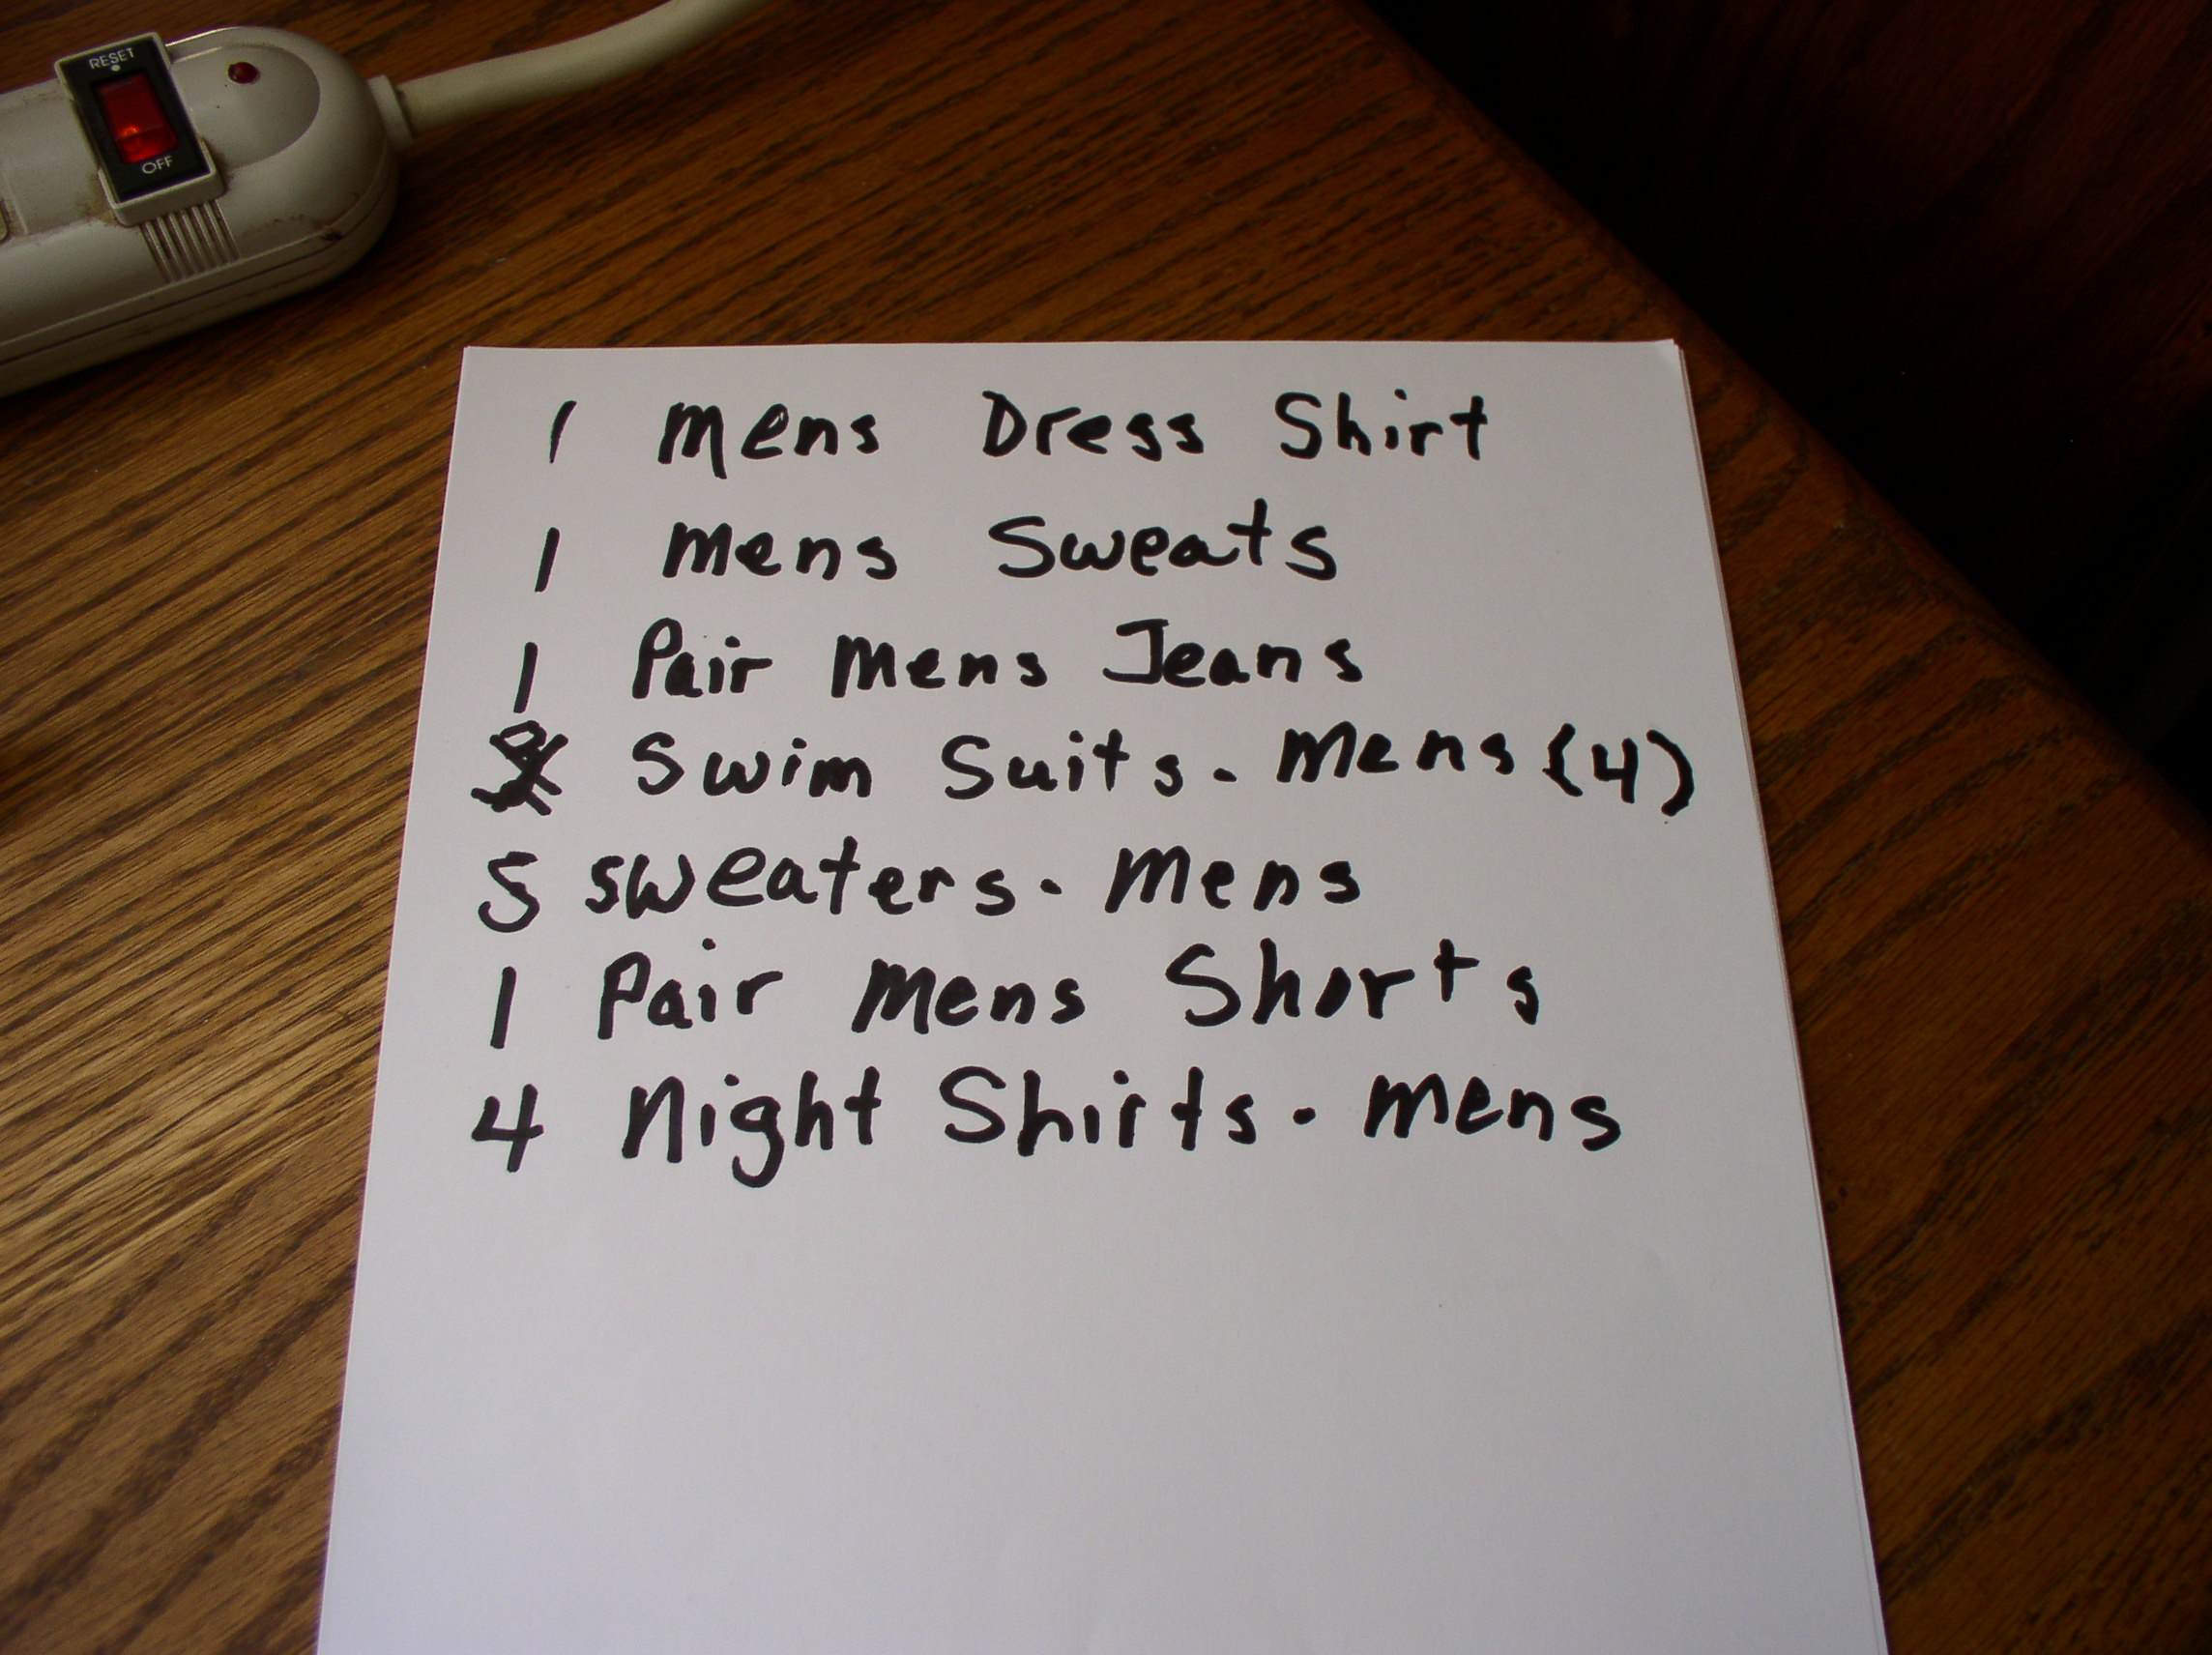 RESET
OFF
1 Mens Dress Shirt
1 Mens Sweats
1 Pair Mens Jeans
Swim Suits - Mens (4)
5 Sweaters - Mens
1 Pair Mens Shorts
4 Night Shirts - Mens